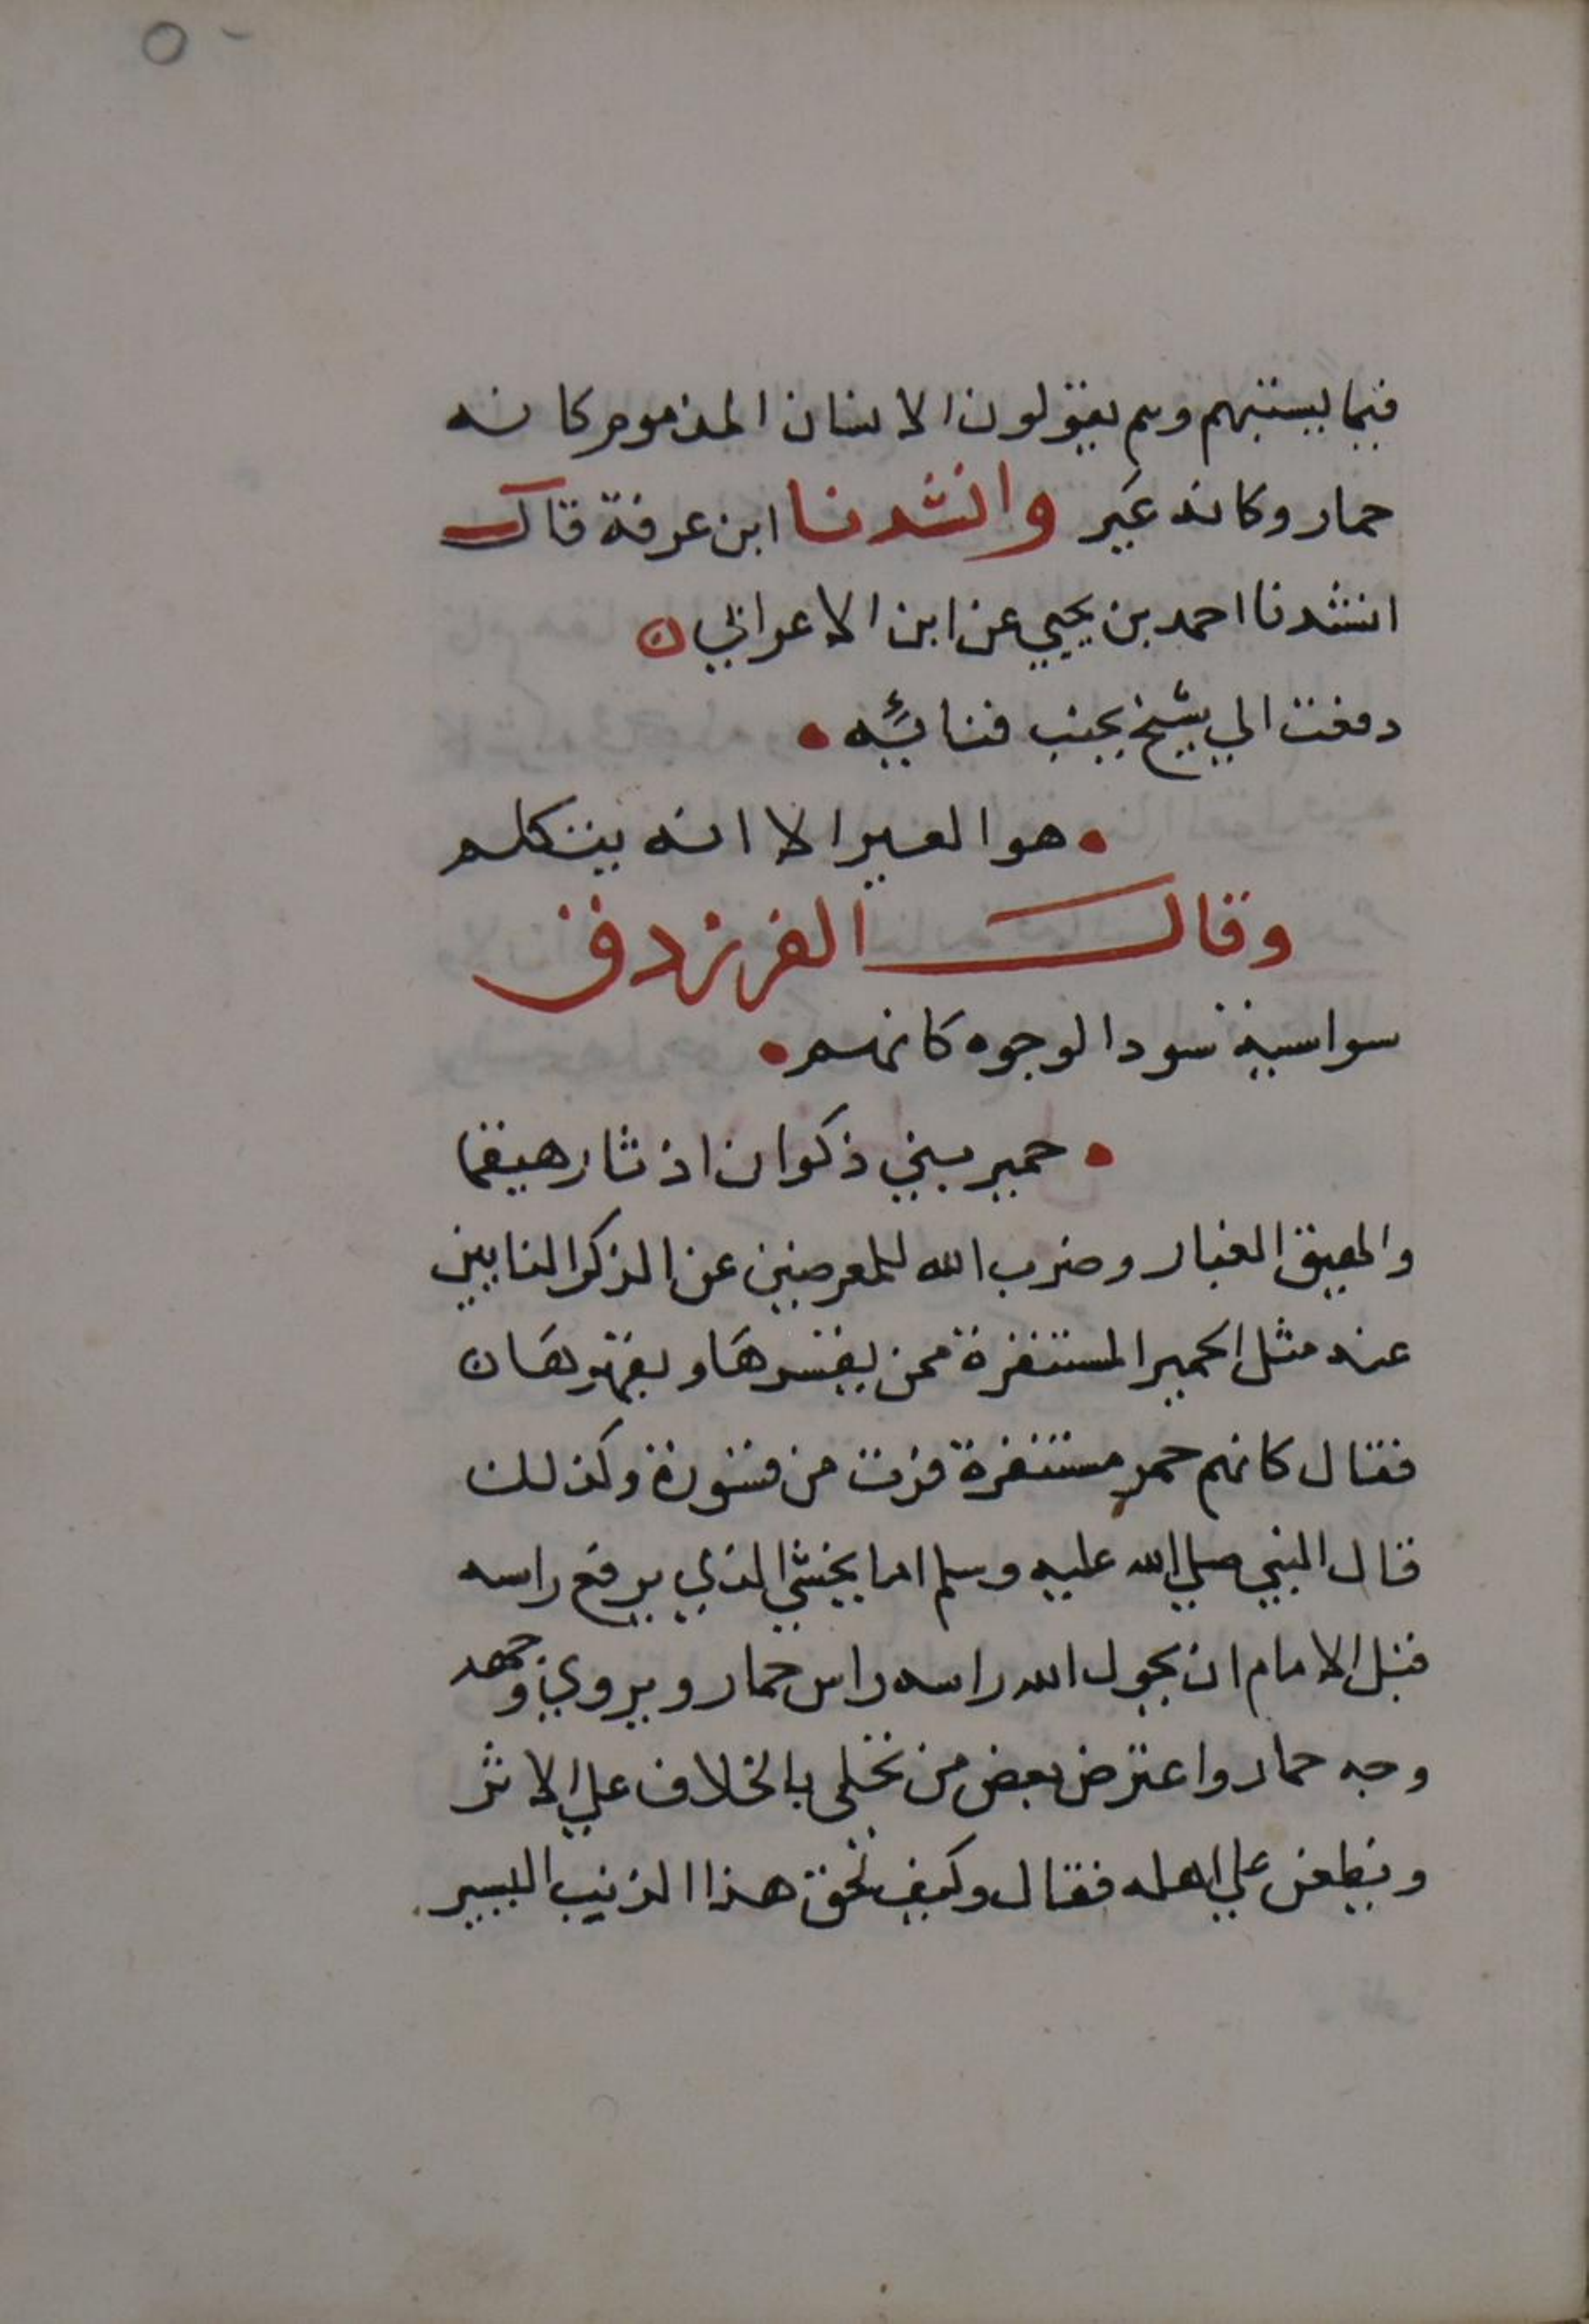 ٥٠
فيما يستبهم وهم يقولون الانسان المذموم كانه
حمار وكانه عَير وانشدنا ابن عرفة قال
انشدنا احمد بن يحيي عن ابن الاعرابي ن
دفعت الي شيخ بجنب فنائه
هو العير الا انه يتكلم
وقال الفرزدق
سواسية سود الوجوه كانهم
حمير بني ذكوان اذ ثار هيقما
والهيق الغبار وضرب الله للمعرضين عن الذكر النابين
عنه مثل الحمير المستنفرة ممن يقسرها ويقهرها ن
فقال كانهم حمر مستنفرة فرت من قسورة وكذلك
قال النبي صلي الله عليه وسلم اما يخشي الذي يرفع راسه
قبل الامام ان يحول الله راسه راس حمار ويروي وجهه
وجه حمار واعترض بعض من تخلى بالخلاف علي الاثر
ويطعن علي اهله فقال وكيف تحق هذا الذنب اليسير